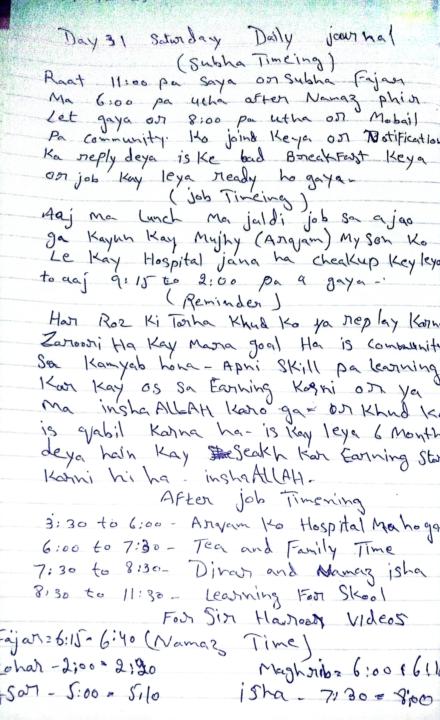 Day 31 Saturday Daily journal
(Subha Timeing)
Raat 11:00 pa Saya or Subha Fajar
Ma 6:00 pa utha after Namaz phir
Let gaya or 8:00 pa utha or Mobail
Pa community Ko joint Keya or Notification
Ka reply deya is Ke bad BreakFast Keya
or job Kay leya ready ho gaya-
(job Timeing)
Aaj ma Lunch Ma jaldi job sa ajao
ga Kayun Kay Mujhy (Arqam) My Son Ko
Le Kay Hospital jana ha cheakup Key leye
to aaj 9:15 to 2:00 pa a gaya-
(Reminder)
Har Roz Ki Tarha Khud Ko ya replay Karna
Zaroori Ha Kay Mara goal Ha is Community
Sa Kamyab hona- Apni Skill pa learning
Kar Kay os sa Earning Karni or ya
Ma insha ALLAH Karo ga- or Khud Ko
is qabil Karna ha- is Kay leya 6 Month
deya hain Kay Seakh Kar Earning Star
Karni hi ha. insha ALLAH.
After job Timening
3:30 to 6:00 - Arqam Ko Hospital Ma ho ga
6:00 to 7:30 - Tea and Family Time
7:30 to 8:30 - Dinar and Namaz isha
8:30 to 11:30 - Learning For Skool
For Sir Haroon Videos
Fajar=6:15- 6:40 (Namaz Time)
Zohar -2:00= 2:20 Maghrib= 6:00
Asar - 5:00 = 5:10 isha - 7:30 = 8:00